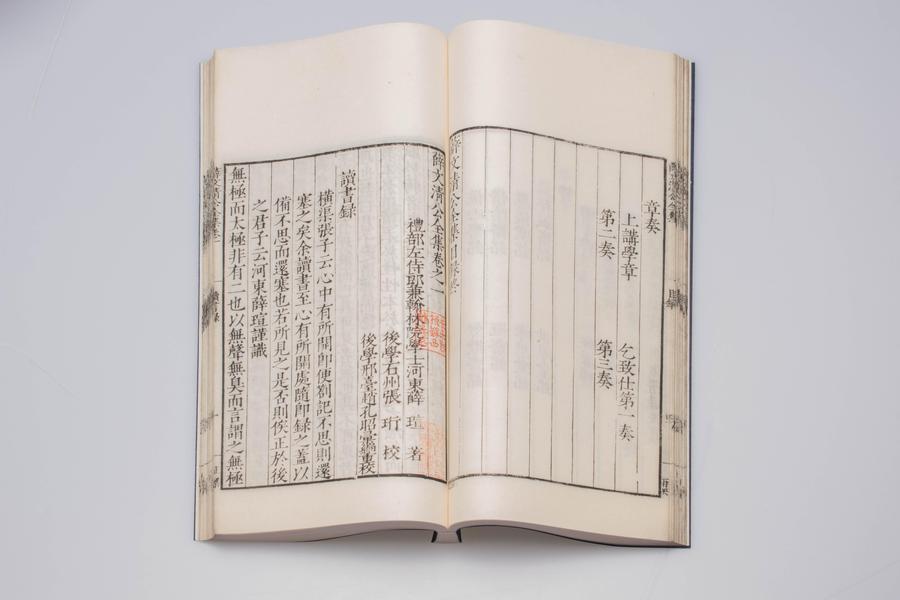 章奏
上講學章 乞致仕第一奏
第二奏 第三奏
薛文清公全集目錄終
薛文清公全集卷之一
禮部左侍郎兼翰林院學士河東薛 瑄 著
後學石州張 珩 校
後學邢臺趙孔昭 重校
讀書録
橫渠張子云心中有所開即便劄記不思則還
塞之矣余讀書至心有所開處隨即録之蓋以
備不思而還塞也若所見之是否則俟正於後
之君子云河東薛瑄謹識
無極而太極非有二也以無聲無臭而言謂之無極